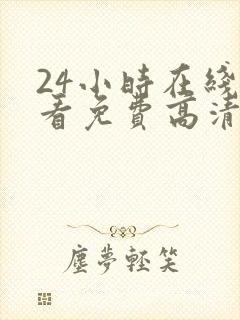 24小時在綫
看免費高清
塵夢輕笑